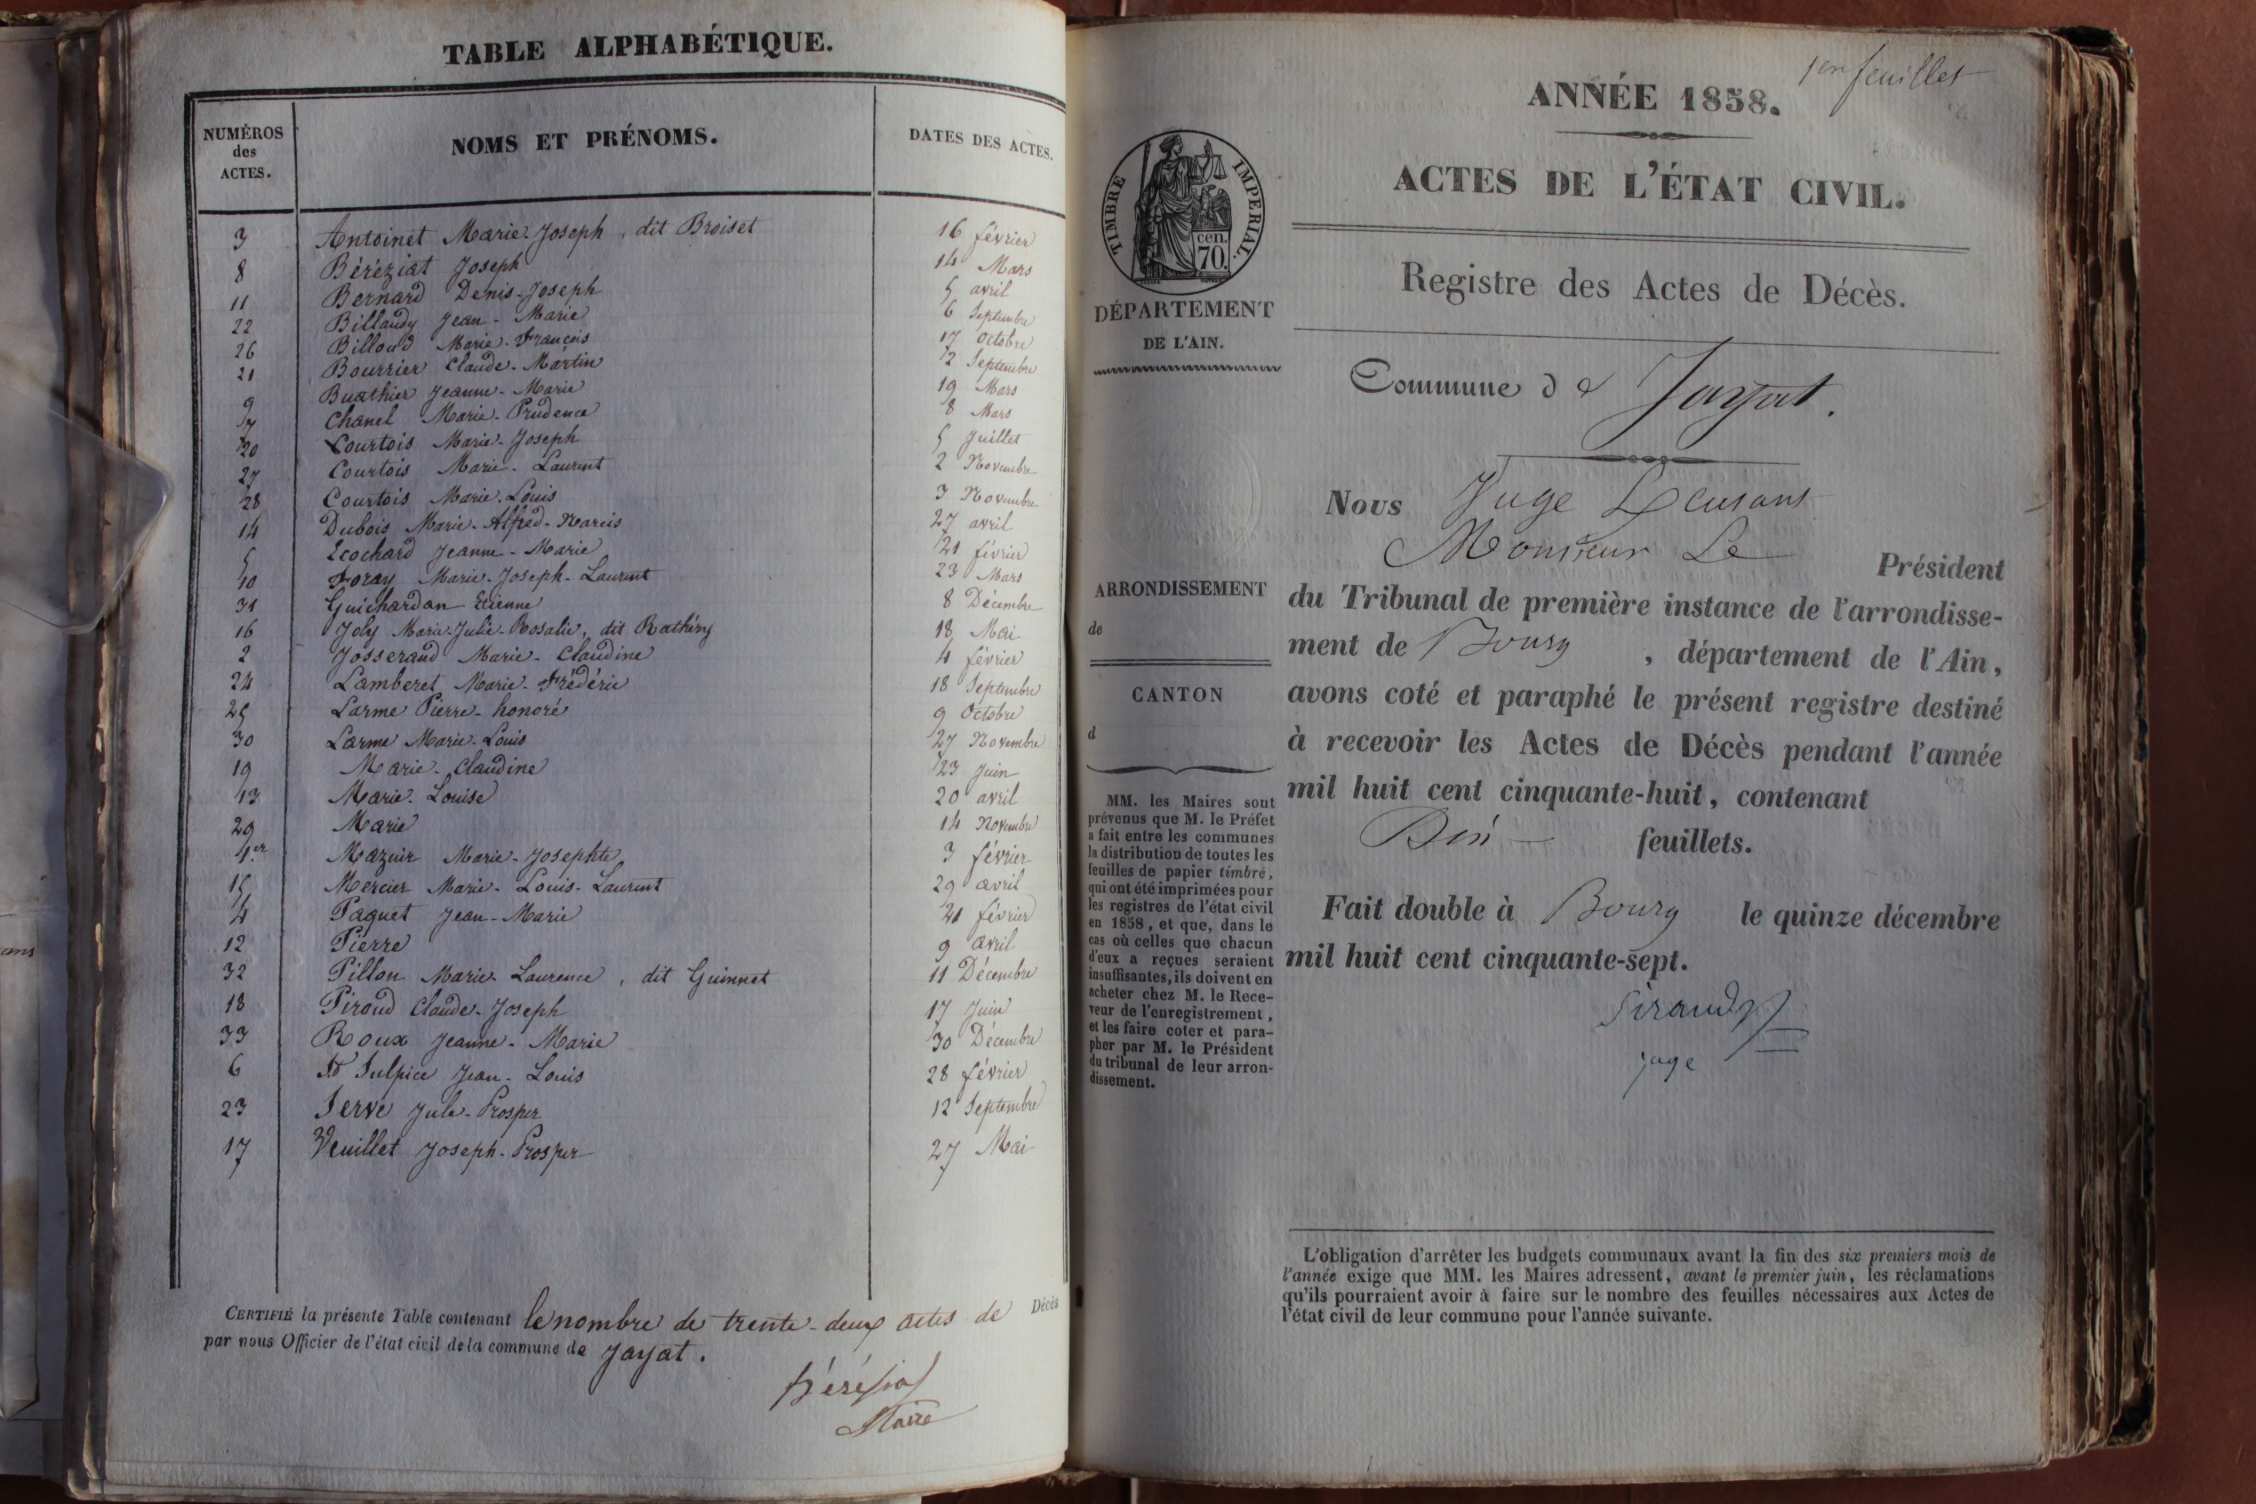 TABLE ALPHABÉTIQUE.
NUMÉROS des ACTES. NOMS ET PRÉNOMS. DATES DES ACTES.
3 Antoinet Marie-Joseph, dit Broiset 16 février
8 Béréziat Joseph 14 Mars
11 Bernard Denis-Joseph 5 avril
22 Billaudy Jean-Marie 6 Septembre
26 Billoud Marie-François 17 Octobre
21 Bourrier Claude-Martin 2 Septembre
9 Buathier Jeanne-Marie 19 Mars
7 Chanel Marie-Prudence 8 Mars
20 Courtois Marie-Joseph 5 Juillet
27 Courtois Marie-Laurent 2 Novembre
28 Courtois Marie-Louis 3 Novembre
14 Dubois Marie-Alfred-Narcis 27 avril
5 Ecochard Jeanne-Marie 21 février
10 Foray Marie-Joseph-Laurent 23 Mars
31 Guichardan Etienne 8 Décembre
16 Joly Marie-Julie-Rosalie, dit Rathény 18 Mai
2 Josserand Marie-Claudine 4 février
24 Lamberet Marie-Frédéric 18 Septembre
25 Larme Pierre-honoré 9 Octobre
30 Larme Marie-Louis 27 Novembre
19 Marie-Claudine 23 Juin
13 Marie-Louise 20 avril
29 Marie 14 Novembre
1er Mazuir Marie-Josephte 3 février
15 Mercier Marie-Louis-Laurent 29 avril
4 Paquet Jean-Marie 21 février
12 Pierre 9 avril
32 Pillon Marie Laurence, dit Guinnet 11 Décembre
18 Piroud Claude-Joseph 17 Juin
33 Roux Jeanne-Marie 30 Décembre
6 St Sulpice Jean-Louis 28 février
23 Serve Jule-Prosper 12 Septembre
17 Veuillet Joseph-Prosper 27 Mai
CERTIFIÉ la présente Table contenant le nombre de trente-deux actes de Décès
par nous Officier de l'état civil de la commune de Jayat.
Béréziat
Maire
1er feuillet
ANNÉE 1858.
ACTES DE L'ÉTAT CIVIL.
TIMBRE IMPERIAL.
cen.
70.
Registre des Actes de Décès.
DÉPARTEMENT
DE L'AIN.
Commune de Jayat.
Nous Juge
Monsieur Le Président
ARRONDISSEMENT
de
CANTON
d
du Tribunal de première instance de l'arrondisse-
ment de Bourg, département de l'Ain,
avons coté et paraphé le présent registre destiné
à recevoir les Actes de Décès pendant l'année
mil huit cent cinquante-huit, contenant
feuillets.
Fait double à Bourg le quinze décembre
mil huit cent cinquante-sept.
juge
MM. les Maires sont
prévenus que M. le Préfet
a fait entre les communes
la distribution de toutes les
feuilles de papier timbré,
qui ont été imprimées pour
les registres de l'état civil
en 1858, et que, dans le
cas où celles que chacun
d'eux a reçues seraient
insuffisantes, ils doivent en
acheter chez M. le Rece-
veur de l'enregistrement,
et les faire coter et para-
pher par M. le Président
du tribunal de leur arron-
dissement.
L'obligation d'arrêter les budgets communaux avant la fin des six premiers mois de
l'année exige que MM. les Maires adressent, avant le premier juin, les réclamations
qu'ils pourraient avoir à faire sur le nombre des feuilles nécessaires aux Actes de
l'état civil de leur commune pour l'année suivante.